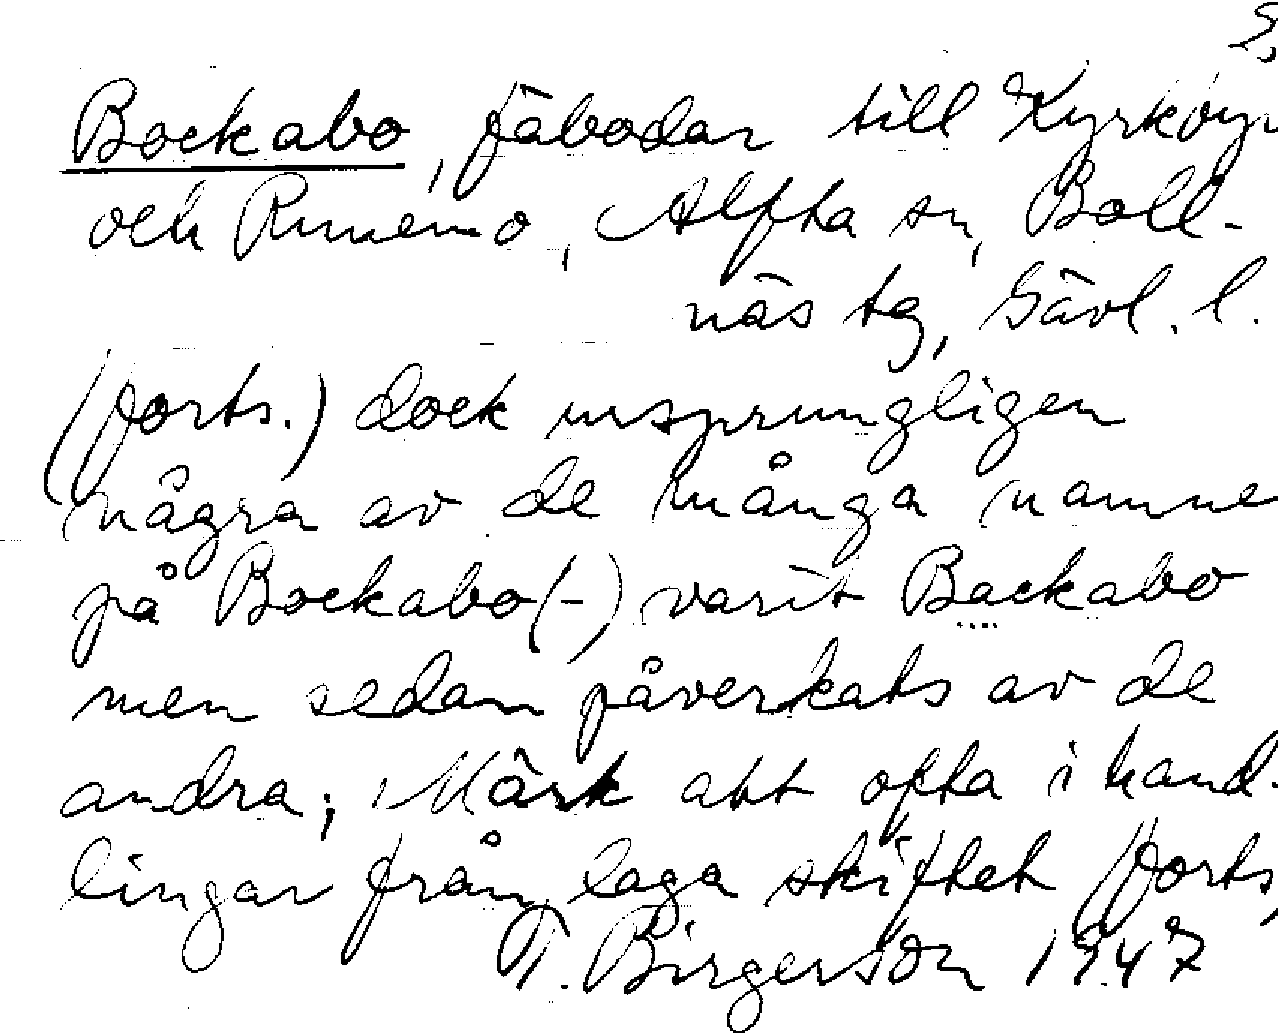 2.
Bockabo, fäbodar till Kyrkbyn
och Runemo, Alfta sn, Boll-
näs tg, Gävl. l.
(forts.) dock ursprungligen
några av de många namne
på Bockabo(-) varit Backabo
men sedan påverkats av de
andra; Märk att ofta i hand-
lingar från laga skiftet (forts,
T. Birgerson 1947